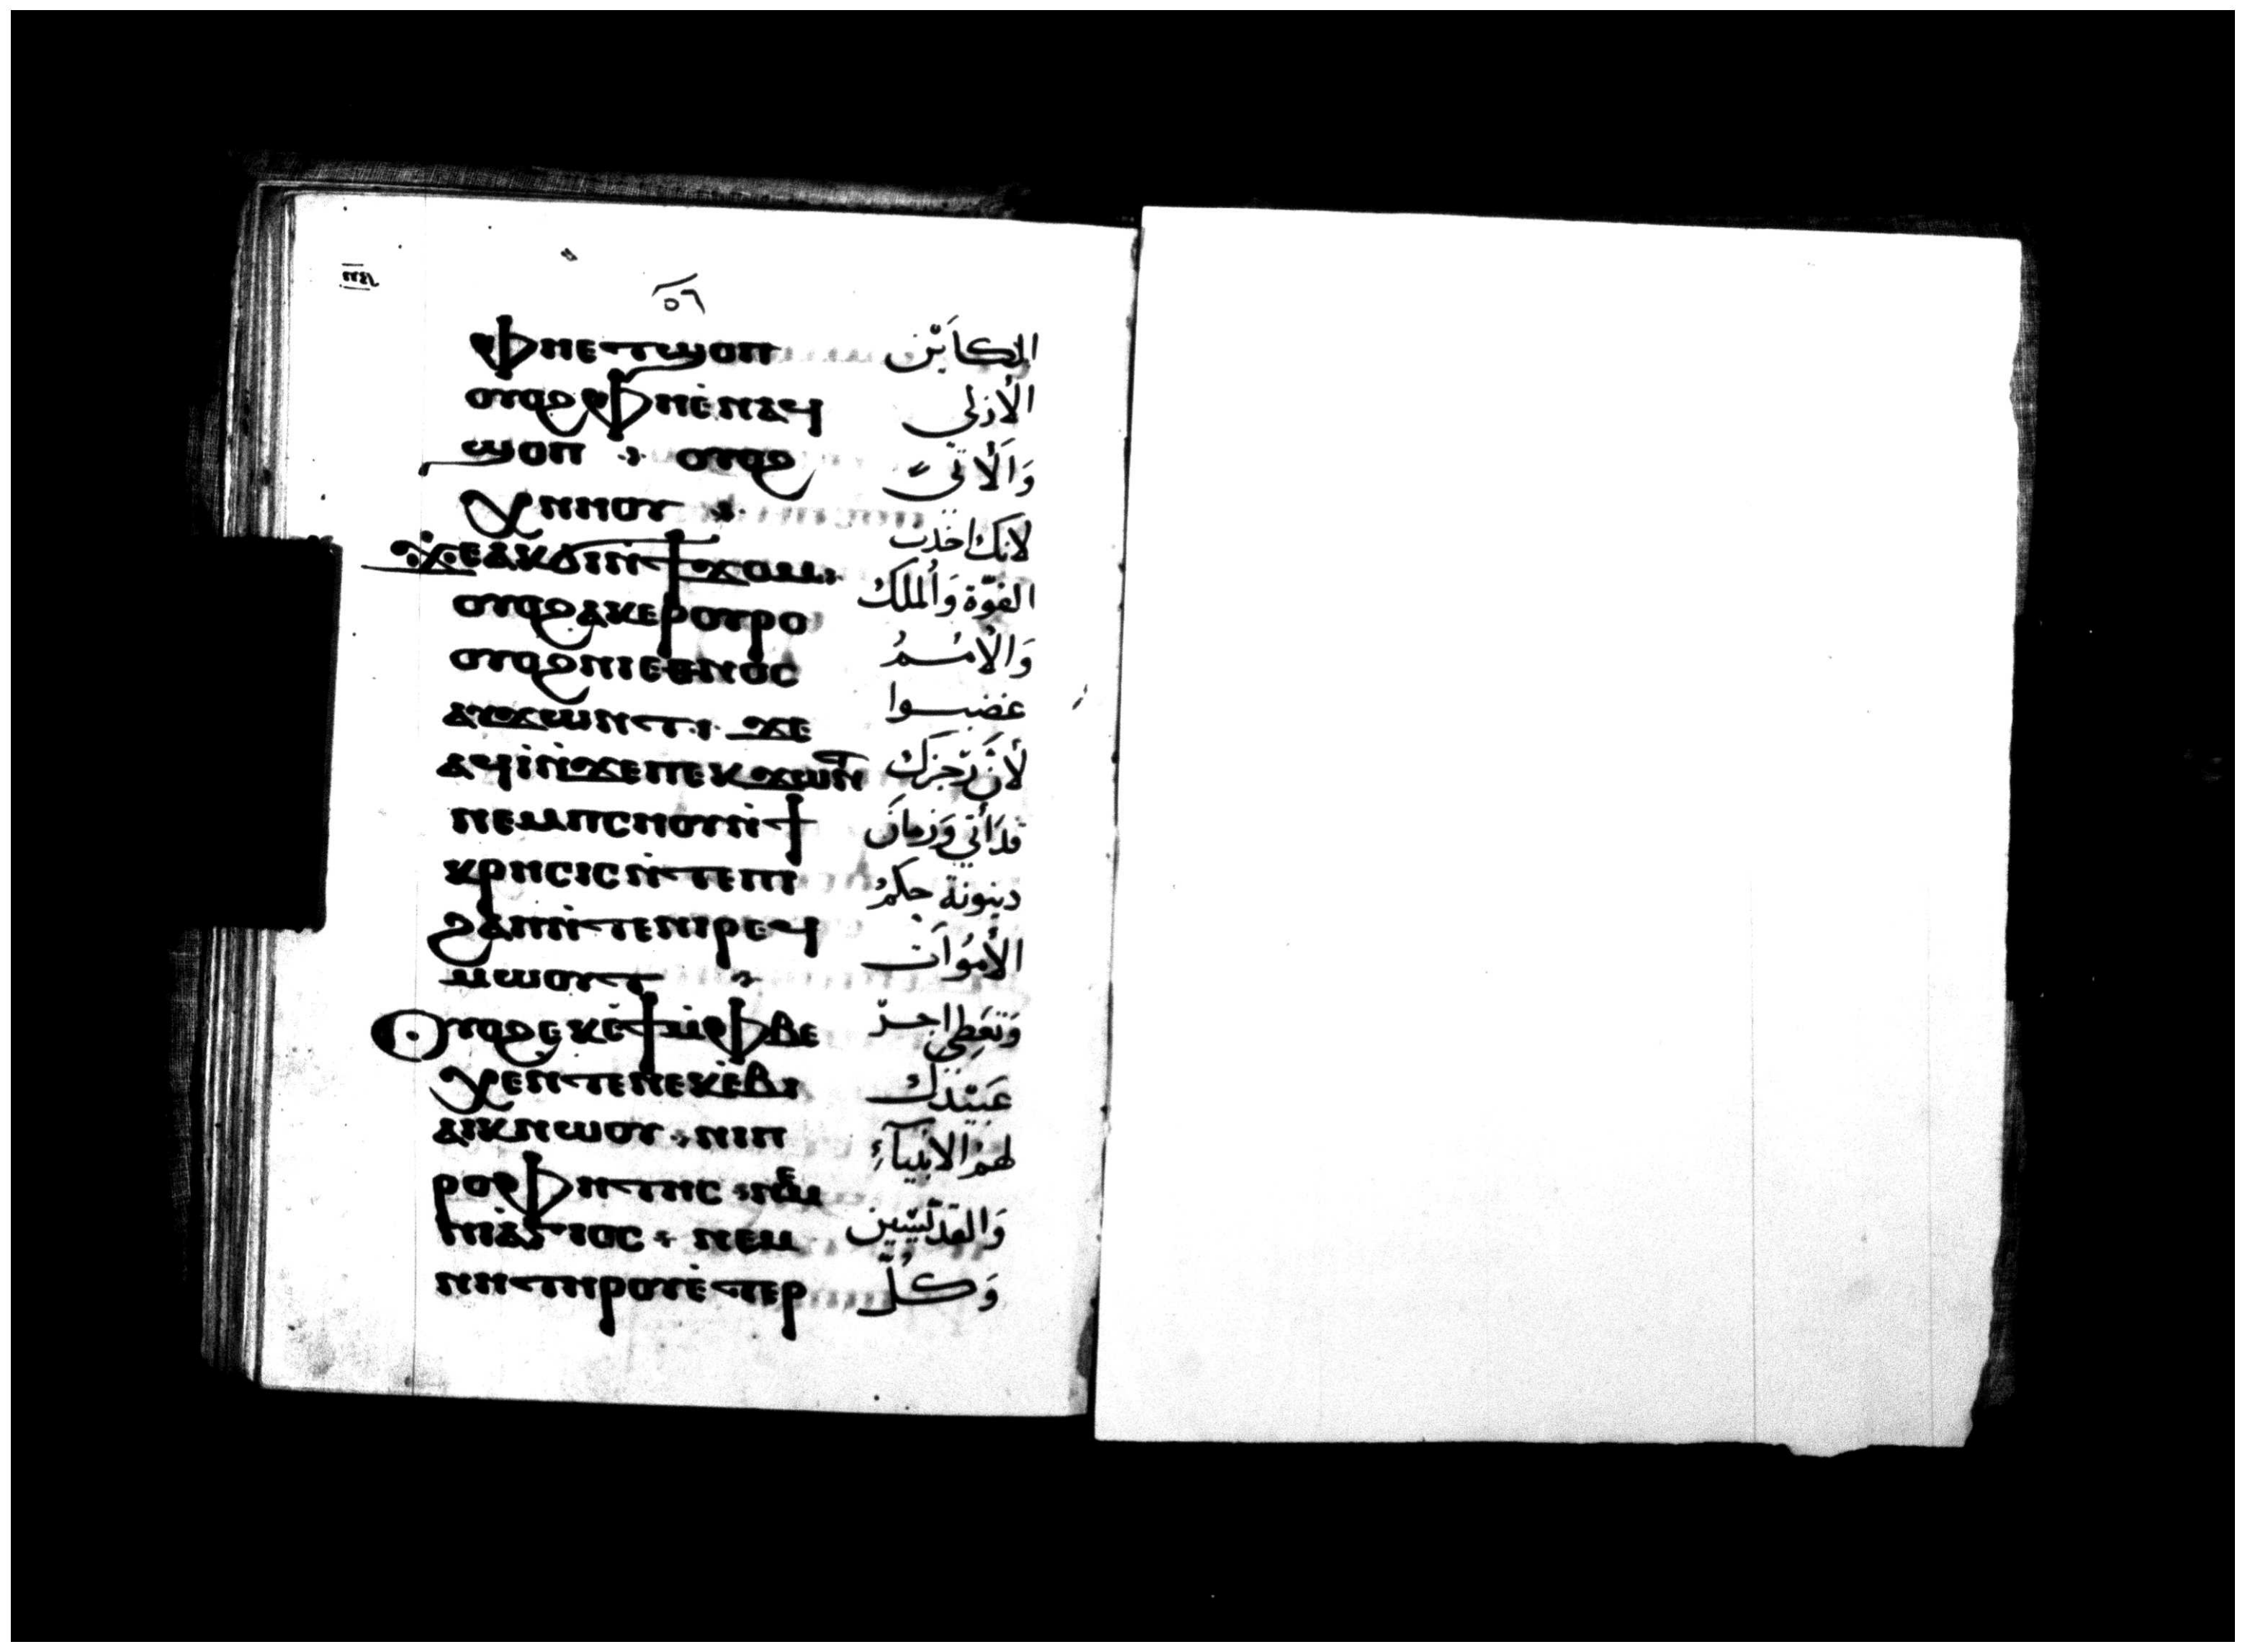 ٥٦
ⲫⲏⲉⲧϣⲟⲡ الكائن
ⲟⲩⲟϩ ⲫⲏⲉ̇ⲛⲁϥ الأزلي
ϣⲟⲡ : ⲟⲩⲟϩ وَالأتيء
ϥⲛⲏⲟⲩ : لانك اخدت
ϫⲉ ⲁⲕϭⲓⲛ̇ϯϫⲟⲙ : القوّة وَالملك
ⲟⲩⲟϩ ⲁⲕⲉⲣⲟⲩⲣⲟ وَالأممُ
ⲟⲩⲟϩ ⲛⲓⲉⲑⲛⲟⲥ غضبوا
ⲁⲩϫⲱⲛⲧ : ϫⲉ لأنَّ رّجزك
ⲁϥⲓ̇ⲛ̇ϫⲉ ⲡⲉⲕϫⲱⲛⲧ قدَأتي وَزمانَ
ⲛⲉⲙ ⲡⲥⲏⲟⲩ ⲛ̇ϯ دينونة حكمُ
ⲕⲣⲏⲥⲓⲥ ⲛ̇ⲧⲉ ⲡⲓ الأموَات
ϩⲁⲡ ⲛ̇ⲧⲉ ⲛⲓⲣⲉϥ
ⲙⲱⲟⲩⲧ : وَتعَطِي اجرّ
ⲟⲩⲟϩ ⲉⲕⲉ̇ϯⲙ̇ⲫⲃⲉ عَبيْدك
ⲭⲉ ⲛ̇ⲧⲉ ⲛⲉⲕⲉ̇ⲃⲓ لهمُ الانبيآءِ
ⲁⲓⲕ ⲛⲱⲟⲩ : ⲛⲓⲡ
ⲣⲟⲫⲏⲧⲏⲥ : ⲛⲉⲙ وَالقدّيسّين
ⲛⲓⲁ̇ⲅⲓⲟⲥ : ⲛⲉⲙ
ⲛⲏⲧⲏⲣⲟⲩ ⲉ̇ⲧⲉⲣ وَكلّ